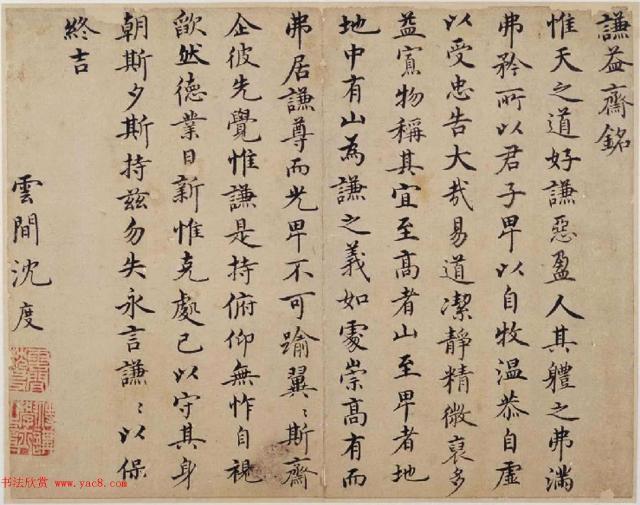 謙益齋銘
惟天之道好謙惡盈人其軆之弗滿
弗矜所以君子卑以自牧温恭自虛
以受忠告大哉易道潔靜精微裒多
益寡物稱其宜至高者山至卑者地
地中有山為謙之義如處崇高有而
弗居謙尊而光卑不可踰翼〻斯齋
企彼先覺惟謙是持俯仰無怍自視
欿然德業日新惟克處己以守其身
朝斯夕斯持兹勿失永言謙〻以保
終吉
雲間沈度
书法欣赏 www.yac8.com